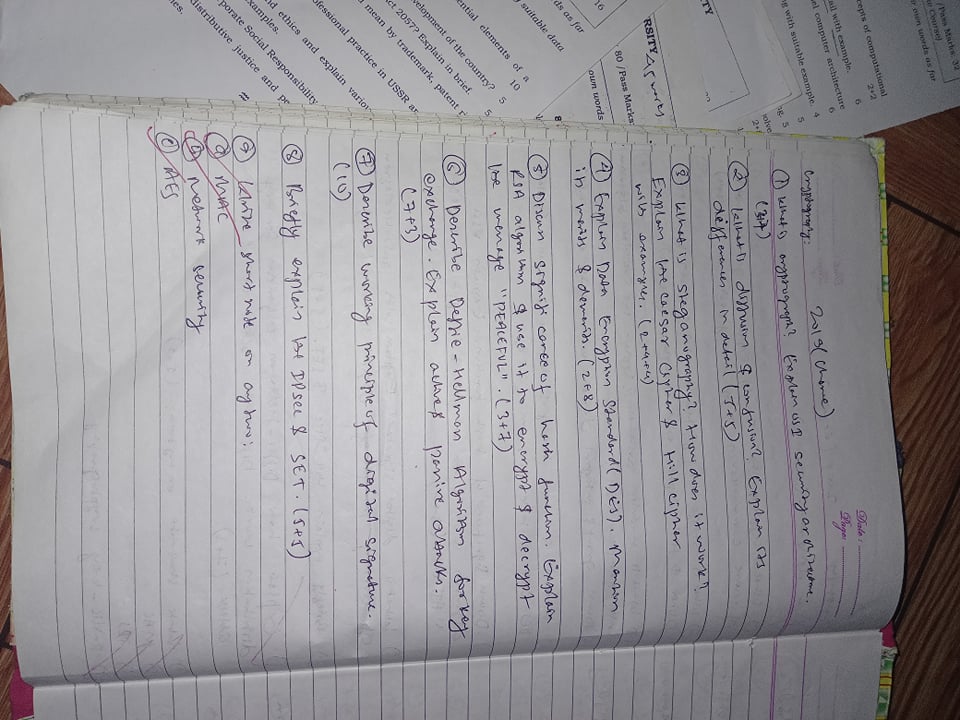 /Pass Marks: 32
Course)
own words as far
cepts of computational
2+2
ail with example. 6
el computer architecture
6
g with suitable example. 4
5
5
TY
RSITY
80 /Pass Marks
own words
ds as far
suitable data
ential elements of a
10
velopment of the country? 5
ct 205?? Explain in brief. 5
mean by trademark, patent
ofessional practice in USSR
nd ethics and explain
examples.
porate Social Responsibility
distributive justice and
Date:
Page:
Cryptography: 2019
① What is cryptograph? Explain security architecture.
② What is diffusion & confusion? Explain its
differences in detail (5+5)
③ What is steganography? How does it work?
Explain the caesar Cypher & Hill cipher
with examples. (2+4+4)
④ Explain Data Encryption Standard (DES). Mention
its merits & demerits. (2+8)
⑤ Discuss significance of hash function. Explain
RSA algorithm & use it to encrypt & decrypt
the message "PEACEFUL". (3+7)
⑥ Describe Deffie-Hellman Algorithm for key
exchange. Explain active & passive attacks.
(7+3)
⑦ Describe working principle of digital signature.
(10)
⑧ Briefly explain the IPsec & SET. (5+5)
⑨ Write short note on any two:
ⓐ MAC
ⓑ Network security
ⓒ AES